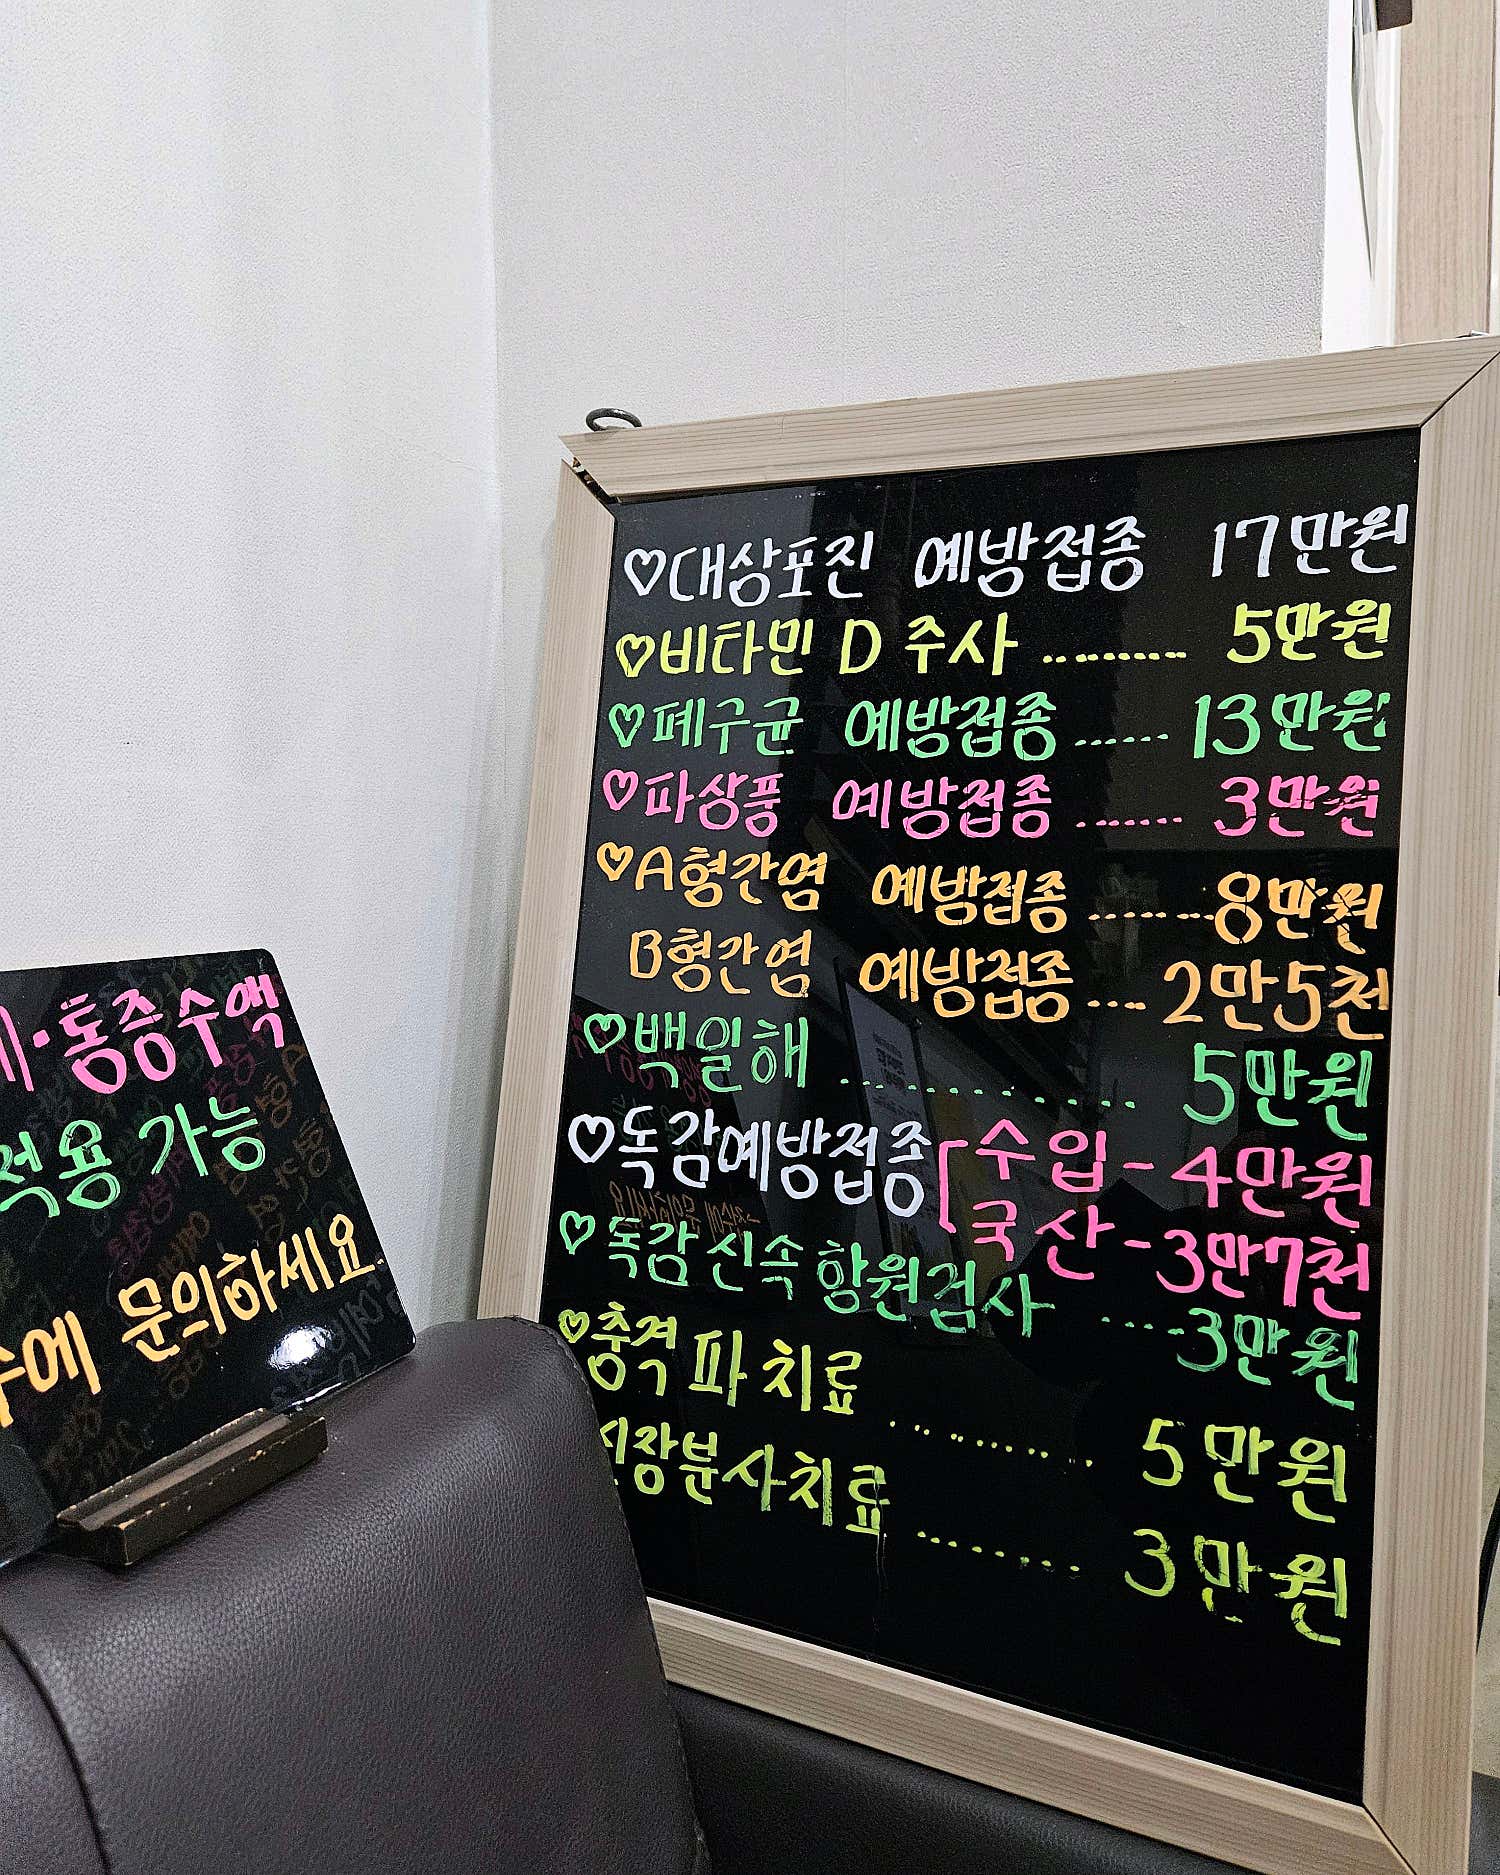 통증수액
적용 가능
문의하세요
♡대상포진 예방접종 17만원
♡비타민 D 주사 .......... 5만원
♡폐구균 예방접종 ...... 13만원
♡파상풍 예방접종 ....... 3만원
♡A형간염 예방접종 ........ 8만원
B형간염 예방접종 .... 2만5천
♡백일해 .............. 5만원
♡독감예방접종 [ 수입 - 4만원
국산 - 3만7천
♡독감신속항원검사 ...... 3만원
♡충격파치료 ........... 5만원
장분사치료 .......... 3만원